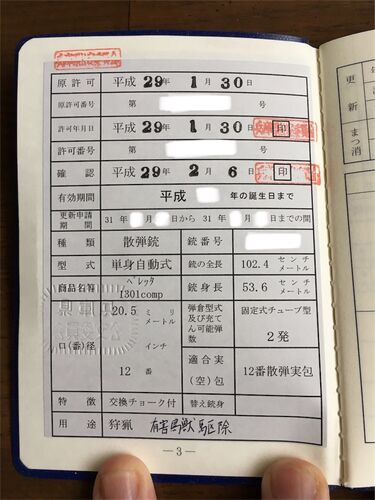 原許可 平成 29年 1月 30日
原許可番号 第 号
許可年月日 平成 29年 1月 30日 印
許可番号 第 号
確認 平成 29年 2月 6日 印
有効期間 平成 年の誕生日まで
更新申請期間 31年 月 日から 31年 月 日までの間
種類 散弾銃 銃番号
型式 単身自動式 銃の全長 102.4 センチメートル
商品名等 ベレッタ 1301comp 銃身長 53.6 センチメートル
口(番)径 20.5 ミリメートル インチ 12 番
弾倉型式及び充てん可能弾数 固定式チューブ型 2発
適合実(空)包 12番散弾実包
特徴 交換チョーク付 替え銃身
用途 狩猟 有害鳥獣駆除
—3—
更
新 まつ消